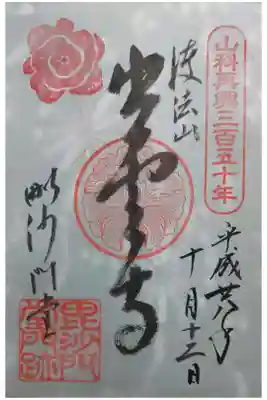 山科再興三百五十年
護法山
出雲寺
毗沙門堂
平成廿八年
十月十三日
毘沙門